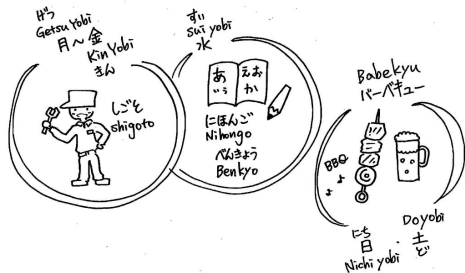 げつ
Getsu Yobi
月～金
Kin Yobi
きん
しごと
shigoto
すい
sui yobi
水
あ えお
いぅ か
にほんご
Nihongo
べんきょう
Benkyo
Babekyu
バーバキュー
BBQ
にち
日・土
Nichi yobi
Doyobi
ど